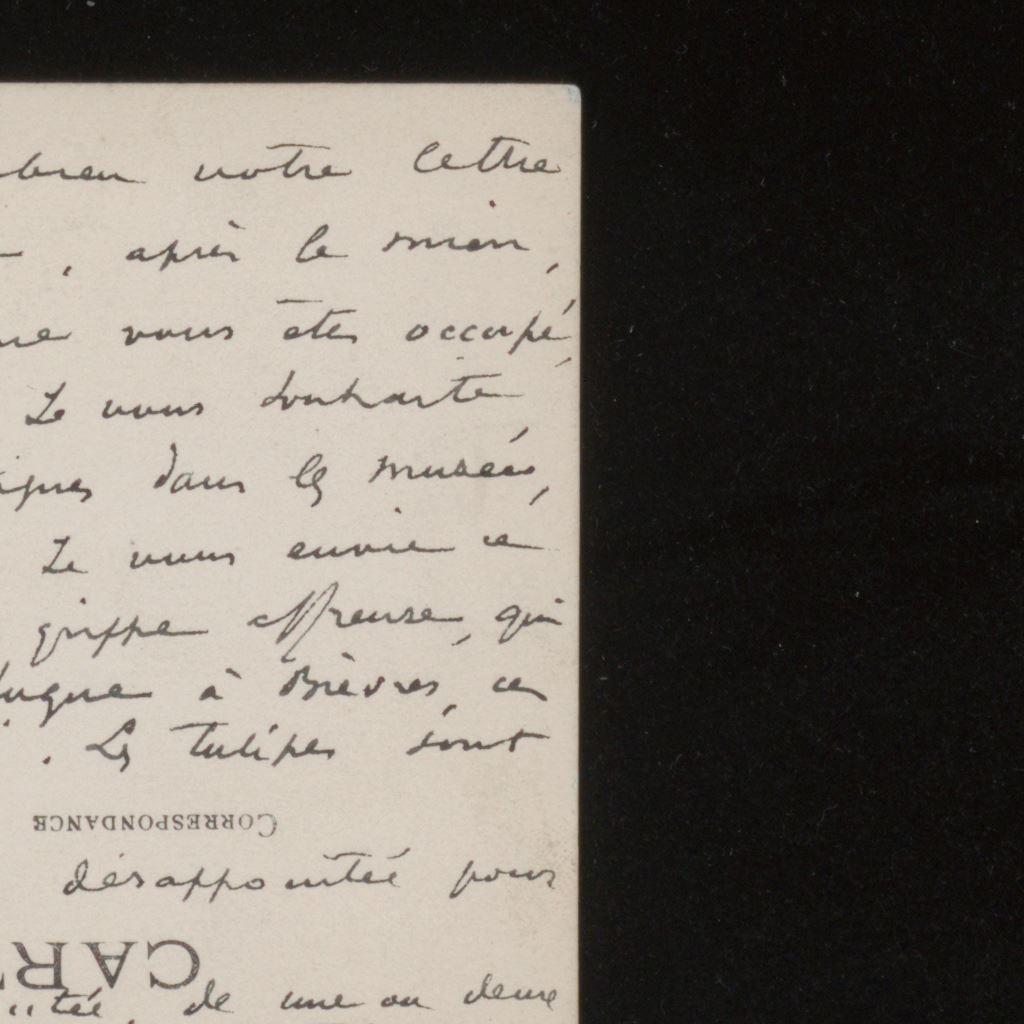 votre lettre
, après le mien,
vous êtes occupé,
Je vous souhaite
dans les musées,
Je vous envie ce
grippe affreuse, qui
à Bièvres, ces
. Les tulipes sont
CORRESPONDANCE
désappointée pour
CAR
de une ou deux